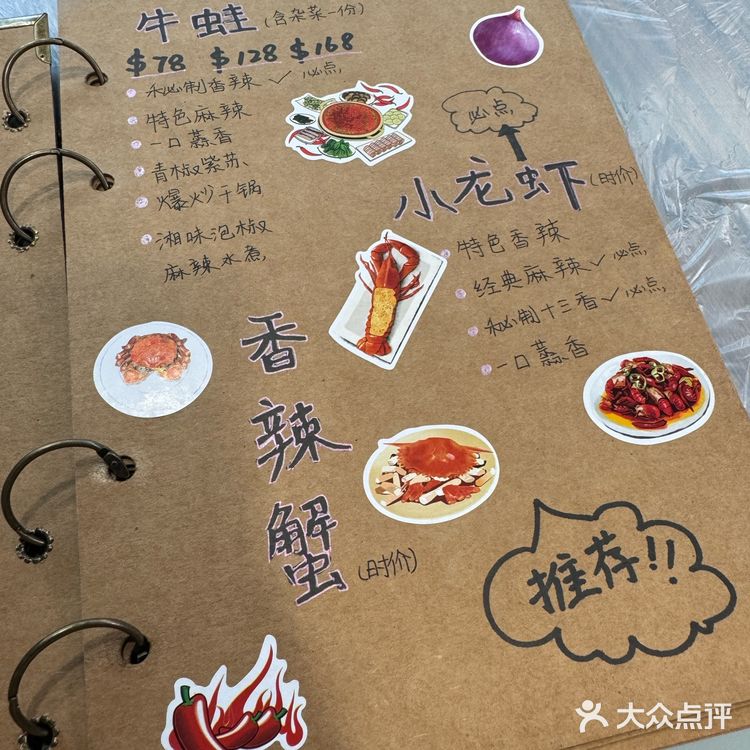 牛蛙(含杂菜一份)
$78 $128 $168
秘制香辣✓必点
特色麻辣
一口蒜香
青椒紫苏
爆炒干锅
湘味泡椒
麻辣水煮
必点
小龙虾(时价)
特色香辣
经典麻辣✓必点
秘制十三香✓必点
一口蒜香
香辣蟹(时价)
推荐!!
大众点评